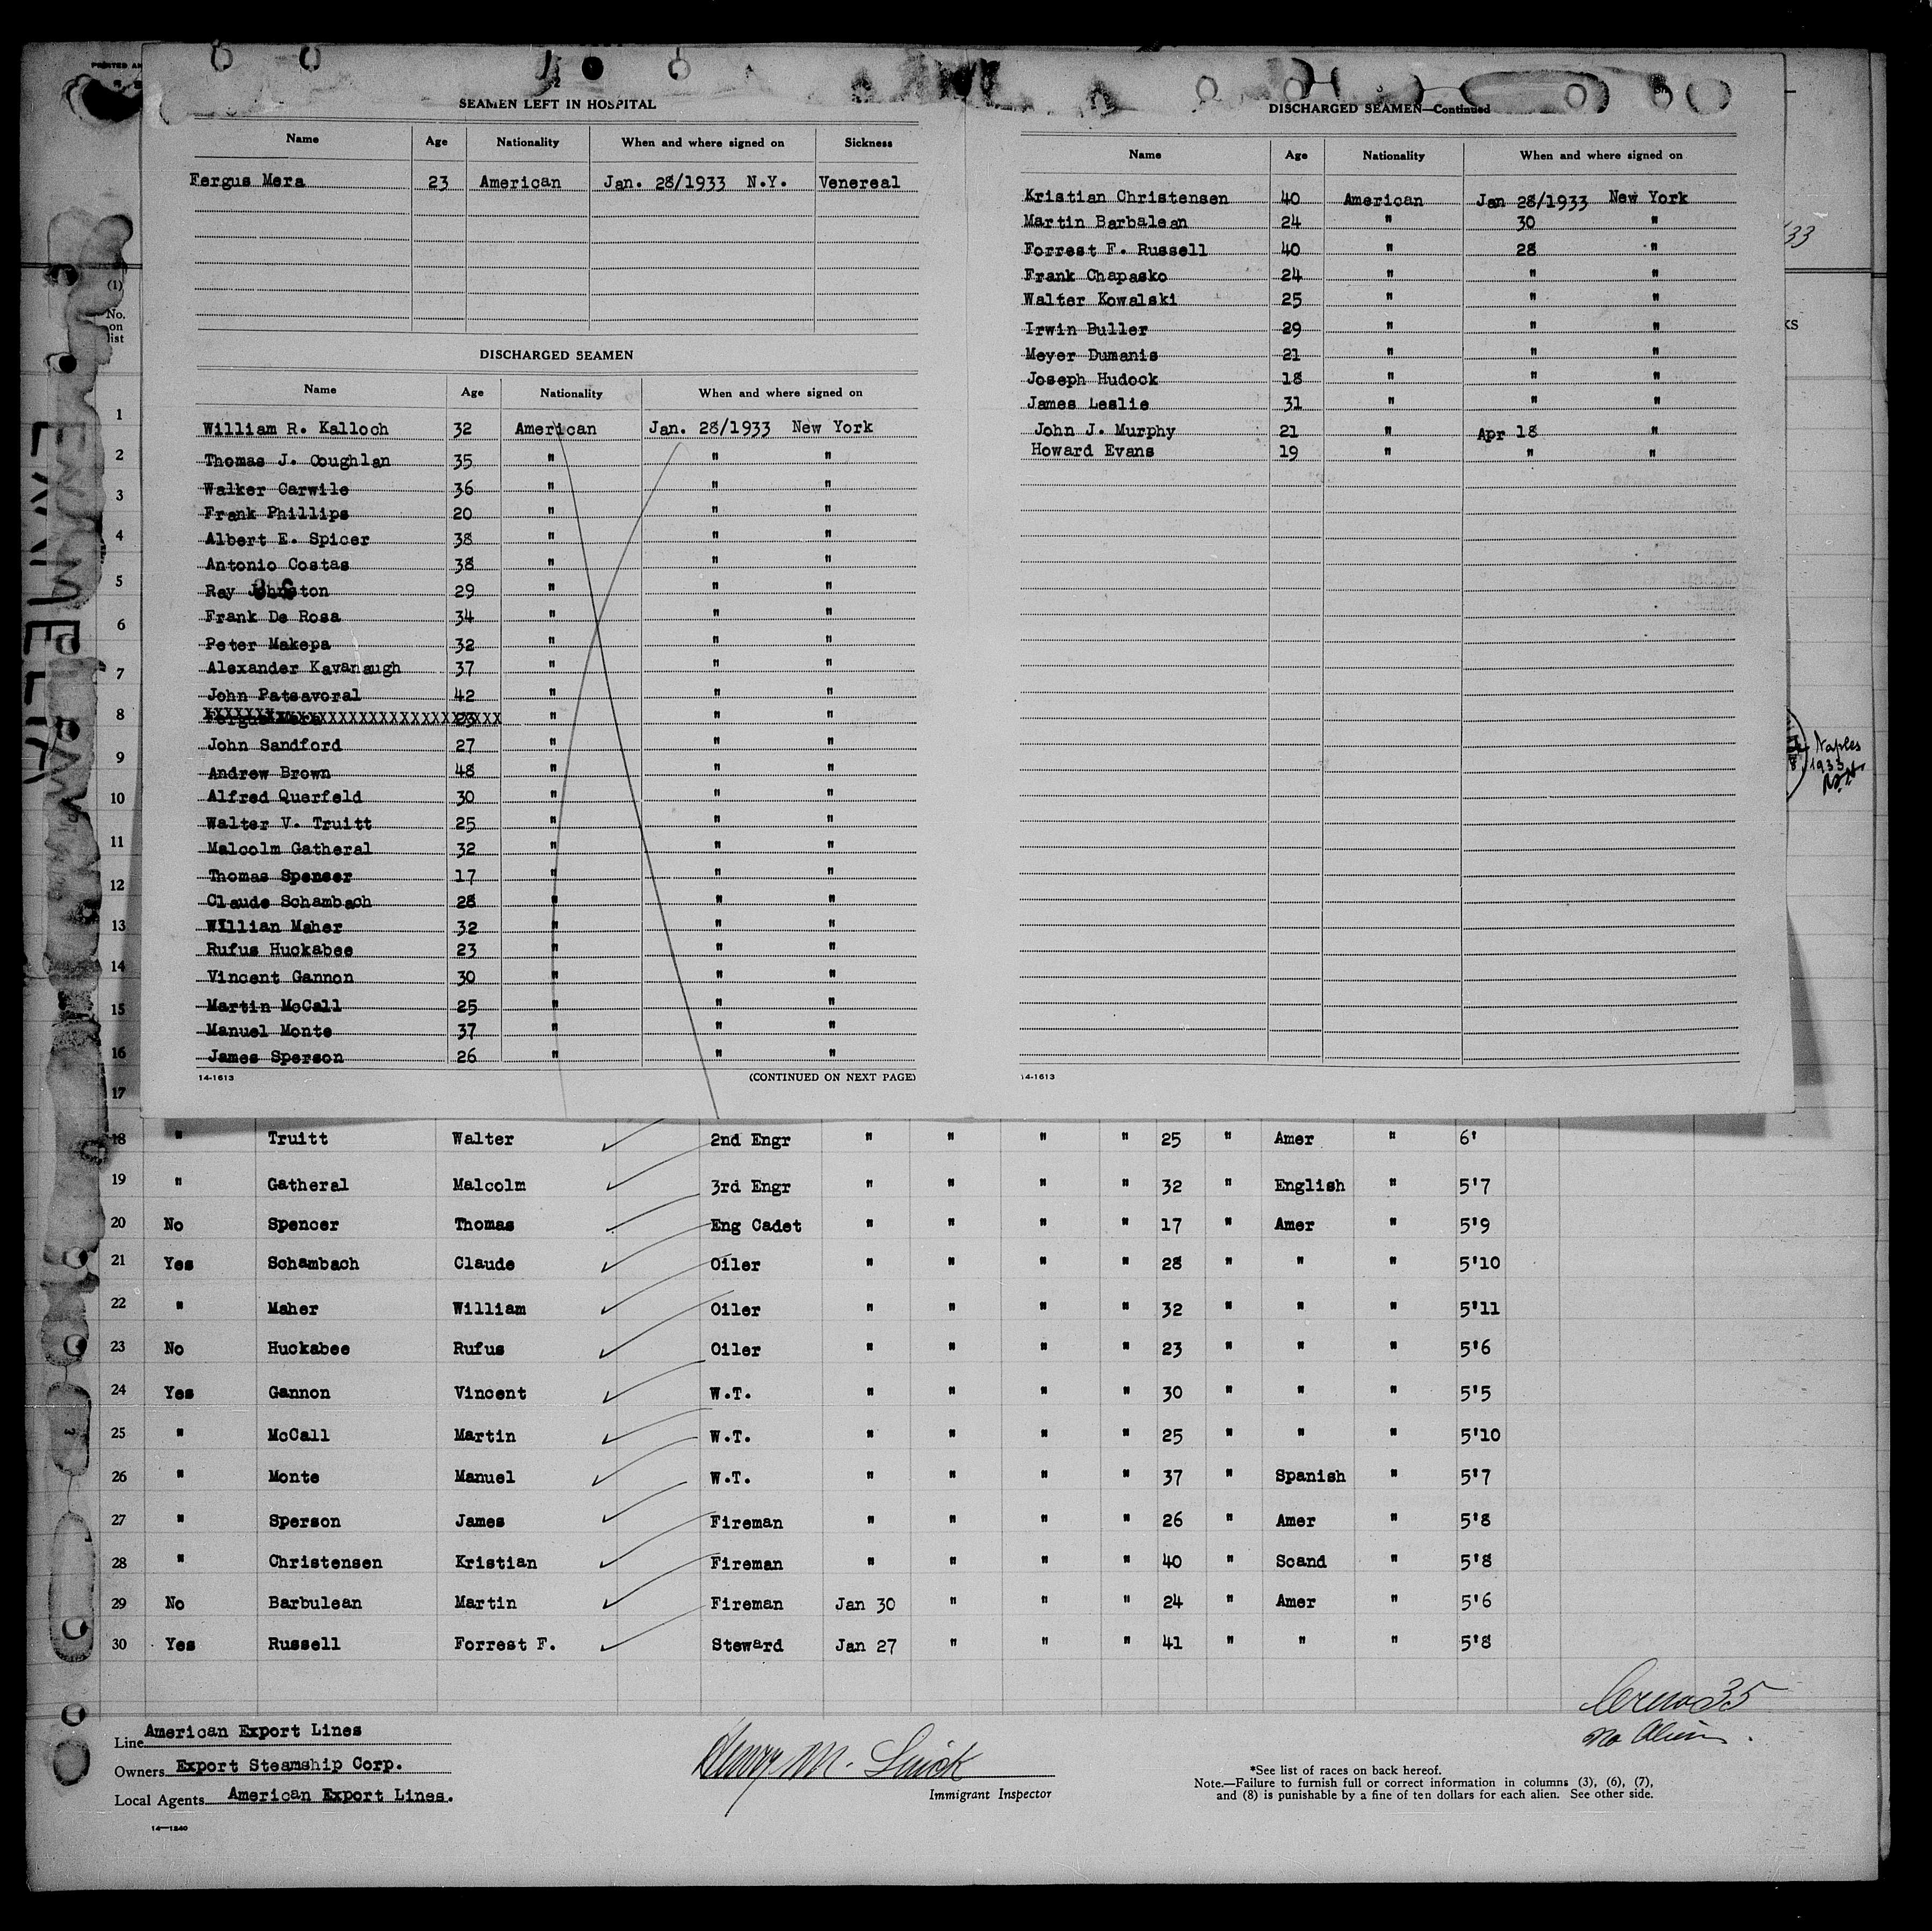 PRINTED AN
SEAMEN LEFT IN HOSPITAL
Name Age Nationality When and where signed on Sickness
Fergus Mera 23 American Jan. 28/1933 N.Y. Venereal
DISCHARGED SEAMEN
Name Age Nationality When and where signed on
William R. Kalloch 32 American Jan. 28/1933 New York
Thomas J. Coughlan 35 " " "
Walker Carwile 36 " " "
Frank Phillips 20 " " "
Albert E. Spicer 38 " " "
Antonio Costas 38 " " "
Ray Johnston 29 " " "
Frank De Rosa 34 " " "
Peter Makepa 32 " " "
Alexander Kavanaugh 37 " " "
John Patsavoral 42 " " "
Fergus Mera 23 " " "
John Sandford 27 " " "
Andrew Brown 48 " " "
Alfred Querfeld 30 " " "
Walter V. Truitt 25 " " "
Malcolm Gatheral 32 " " "
Thomas Spenser 17 " " "
Claude Schambach 28 " " "
Willian Maher 32 " " "
Rufus Huckabee 23 " " "
Vincent Gannon 30 " " "
Martin McCall 25 " " "
Manuel Monte 37 " " "
James Sperson 26 " " "
14-1613 (CONTINUED ON NEXT PAGE)
DISCHARGED SEAMEN—Continued
Name Age Nationality When and where signed on
Kristian Christensen 40 American Jan 28/1933 New York
Martin Barbalean 24 " 30 "
Forrest F. Russell 40 " 28 "
Frank Chapasko 24 " " "
Walter Kowalski 25 " " "
Irwin Buller 29 " " "
Meyer Dumanis 21 " " "
Joseph Hudock 18 " " "
James Leslie 31 " " "
John J. Murphy 21 " Apr 18 "
Howard Evans 19 " " "
14-1613
33
KS
Naples
1933
(1)
No.
on
list
1
2
3
4
5
6
7
8
9
10
11
12
13
14
15
16
17
18 " Truitt Walter 2nd Engr " " " " 25 " Amer " 6'
19 " Gatheral Malcolm 3rd Engr " " " " 32 " English " 5'7
20 No Spencer Thomas Eng Cadet " " " " 17 " Amer " 5'9
21 Yes Schambach Claude Oiler " " " " 28 " " " 5'10
22 " Maher William Oiler " " " " 32 " " " 5'11
23 No Huckabee Rufus Oiler " " " " 23 " " " 5'6
24 Yes Gannon Vincent W.T. " " " " 30 " " " 5'5
25 " McCall Martin W.T. " " " " 25 " " " 5'10
26 " Monte Manuel W.T. " " " " 37 " Spanish " 5'7
27 " Sperson James Fireman " " " " 26 " Amer " 5'8
28 " Christensen Kristian Fireman " " " " 40 " Scand " 5'8
29 No Barbulean Martin Fireman Jan 30 " " " 24 " Amer " 5'6
30 Yes Russell Forrest F. Steward Jan 27 " " " 41 " " " 5'8
35
No Alien
Line American Export Lines
Owners Export Steamship Corp.
Local Agents American Export Lines.
14—1240
Henry M.
Immigrant Inspector
*See list of races on back hereof.
Note.—Failure to furnish full or correct information in columns (3), (6), (7),
and (8) is punishable by a fine of ten dollars for each alien. See other side.